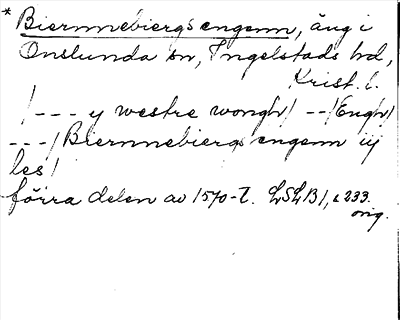 * Biernnebiergs engenn, äng i
Onslunda sn, Ingelstads hd,
Krist. l.
/--- y westre wongh/ --/Engh/
---/Biernnebiergs engenn iij
les/
förra delen av 1570-t. LSLB1, s 233.
orig.